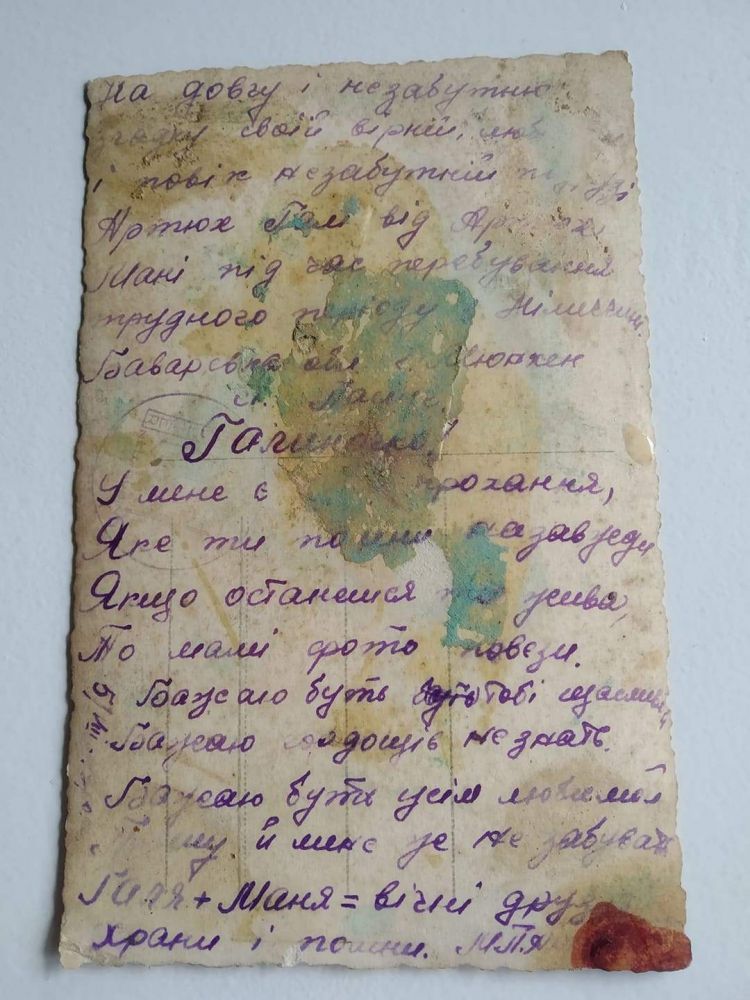 На довгу і незабутню
згадку своїй вірній, люб
і повік незабутній подрузі
Артюх Галі від Артюх
Мані під час перебування
трудного періоду в Німеччині
Баварська обл м Мюнхен
Галиночко!
У мене є прохання,
Яке ти помни назавжди
Якщо останешся ти жива,
То мамі фото повези.
Бажаю буть тобі щасливій
Бажаю гордощів не знать.
Бажаю буть усім любимой
Прошу й мене це не забувать
Галя + Маня = вічні друз
храни і помни. МПЯ